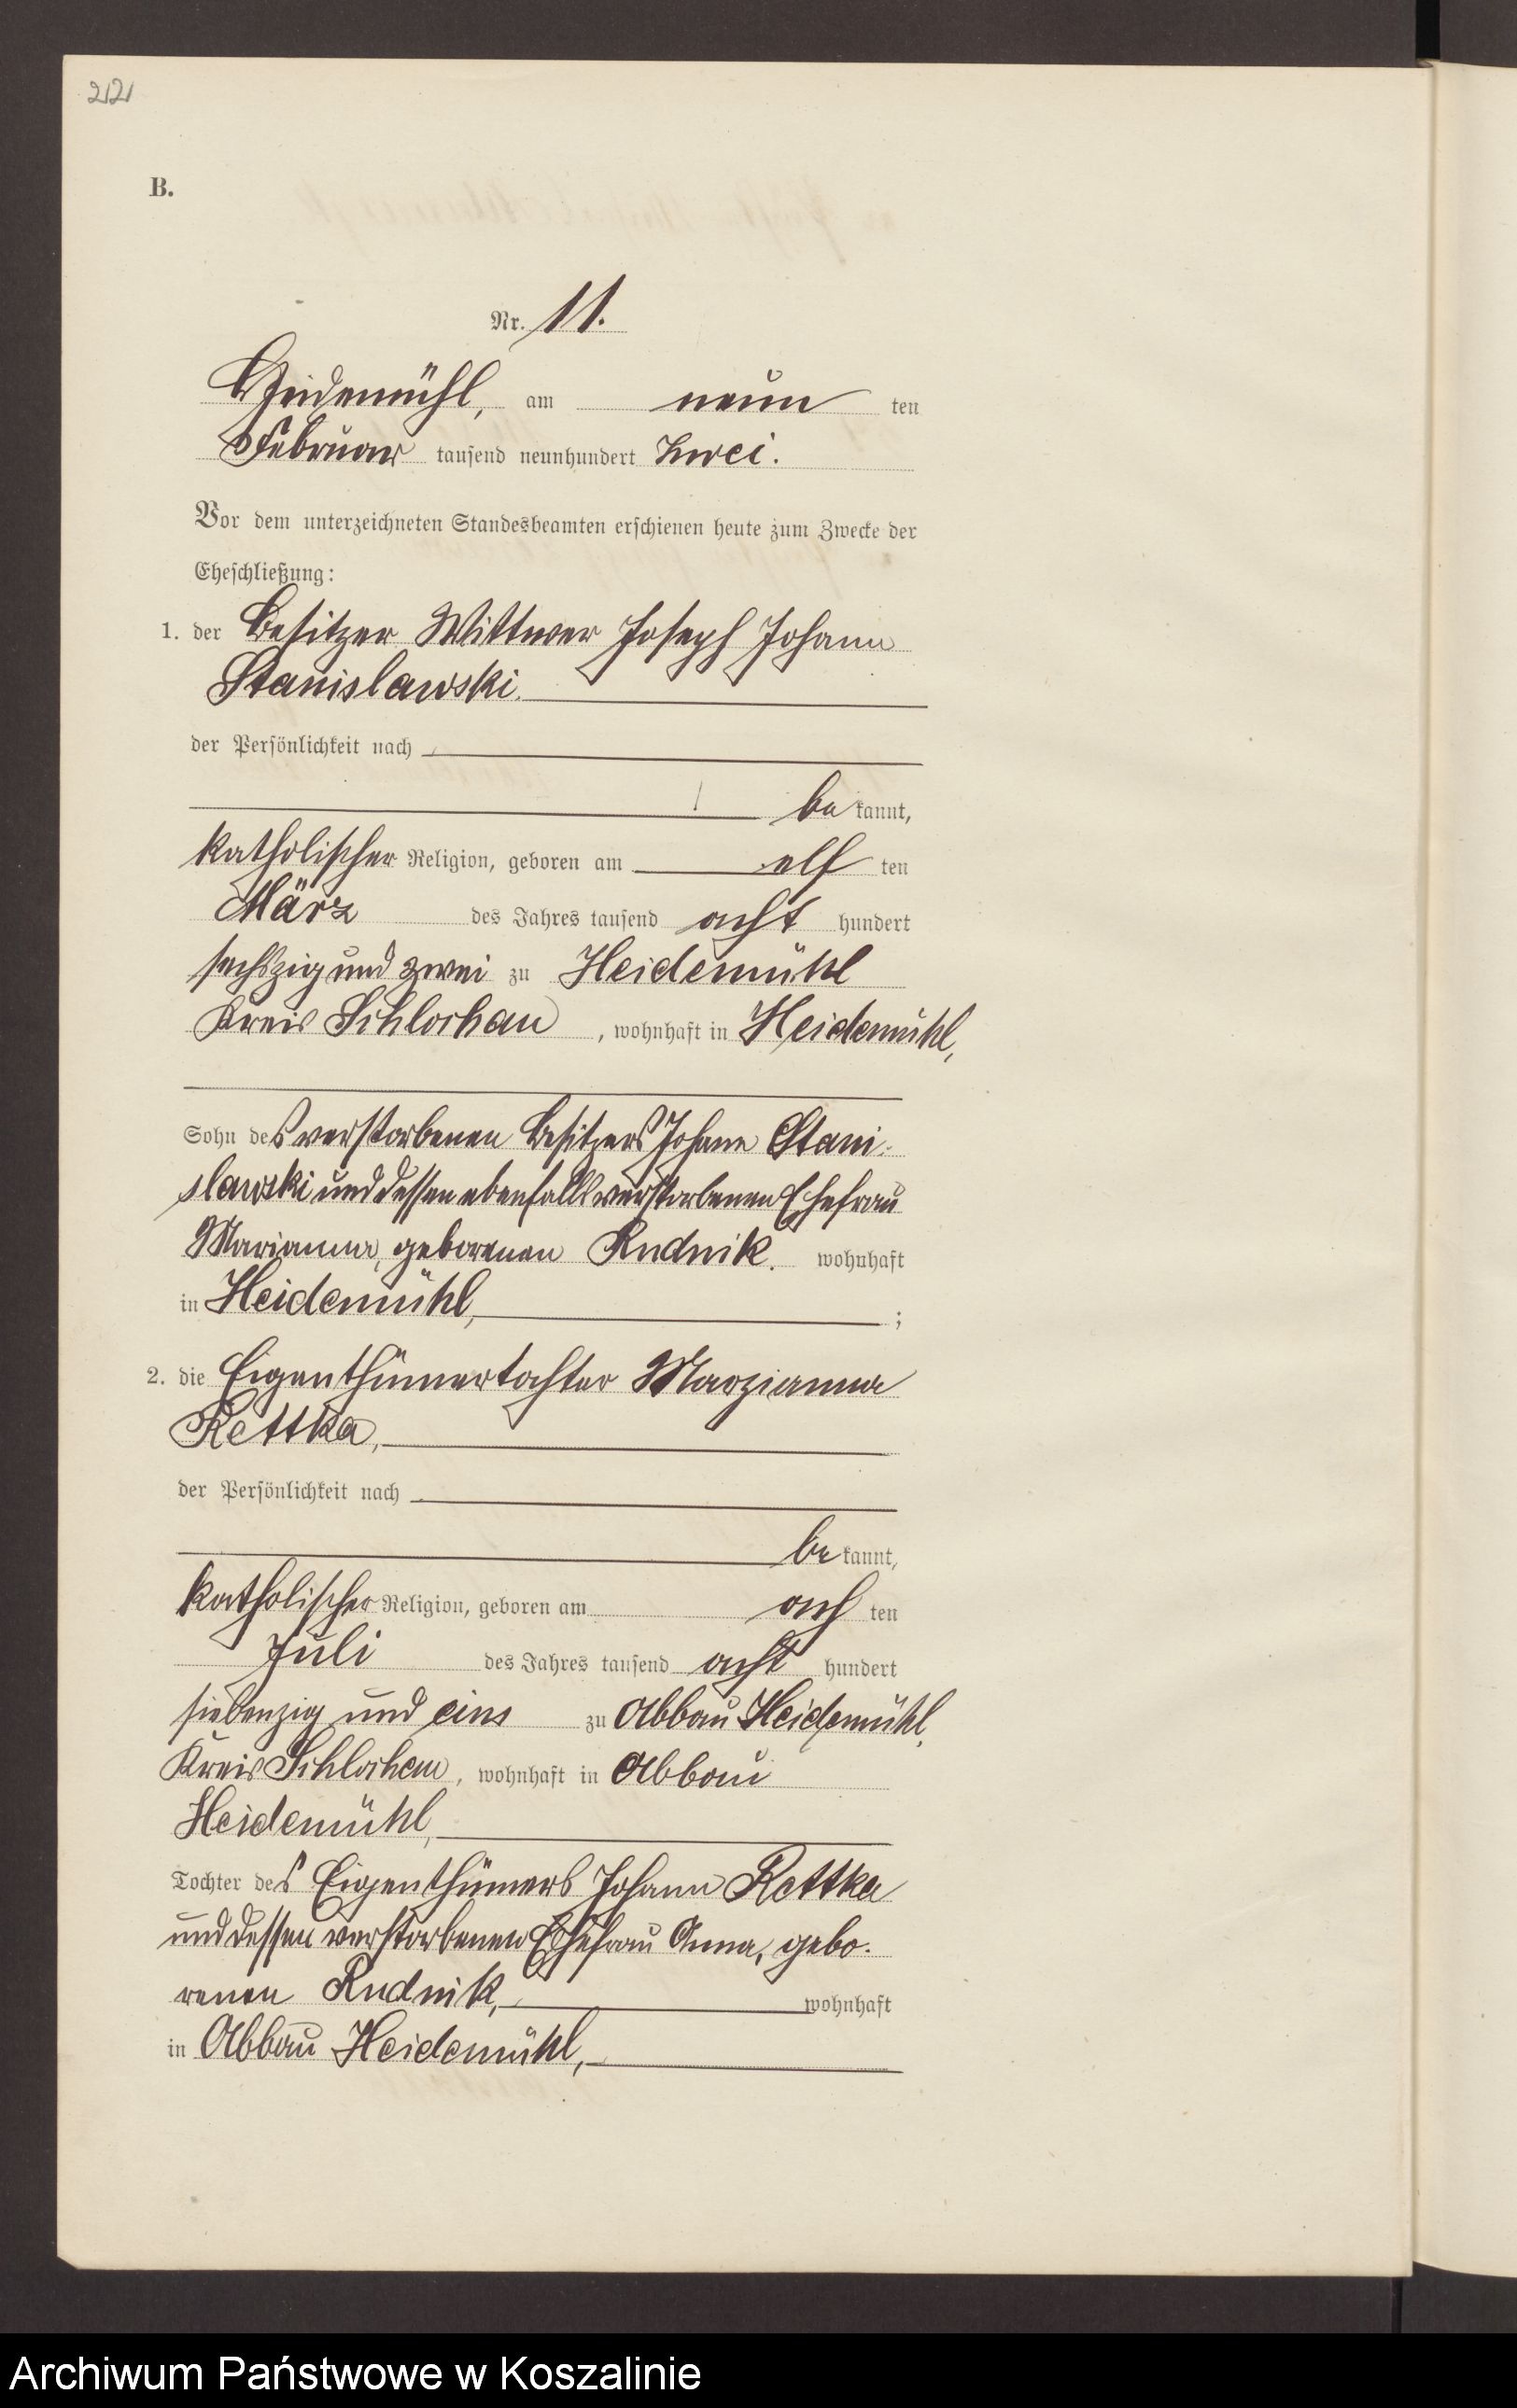 221
B.
Nr. 11.
Heidemühl, am neun ten
Februar tausend neunhundert zwei.
Vor dem unterzeichneten Standesbeamten erschienen heute zum Zwecke der
Eheschließung:
1. der Besitzer Wittwer Joseph Johann
Stanislawski.
der Persönlichkeit nach
be kannt,
katholischer Religion, geboren am elf ten
März des Jahres tausend acht hundert
sechszig und zwei zu Heidemühl
Kreis Schlochau, wohnhaft in Heidemühl,
Sohn des verstorbenen Besitzers Johann Stani-
slawski und dessen ebenfalls verstorbenen Ehefrau
Marianna, geborenen Rudnik. wohnhaft
in Heidemühl, ;
2. die Eigenthümertochter Marzianna
Rettka,
der Persönlichkeit nach
be kannt,
katholischer Religion, geboren am ach ten
Juli des Jahres tausend acht hundert
siebenzig und eins zu Abbau Heidemühl,
Kreis Schlochau, wohnhaft in Abbau
Heidemühl,
Tochter des Eigenthümers Johann Rettka
und dessen verstorbenen Ehefrau Anna, gebo-
renen Rudnik, wohnhaft
in Abbau Heidemühl,
Archiwum Państwowe w Koszalinie